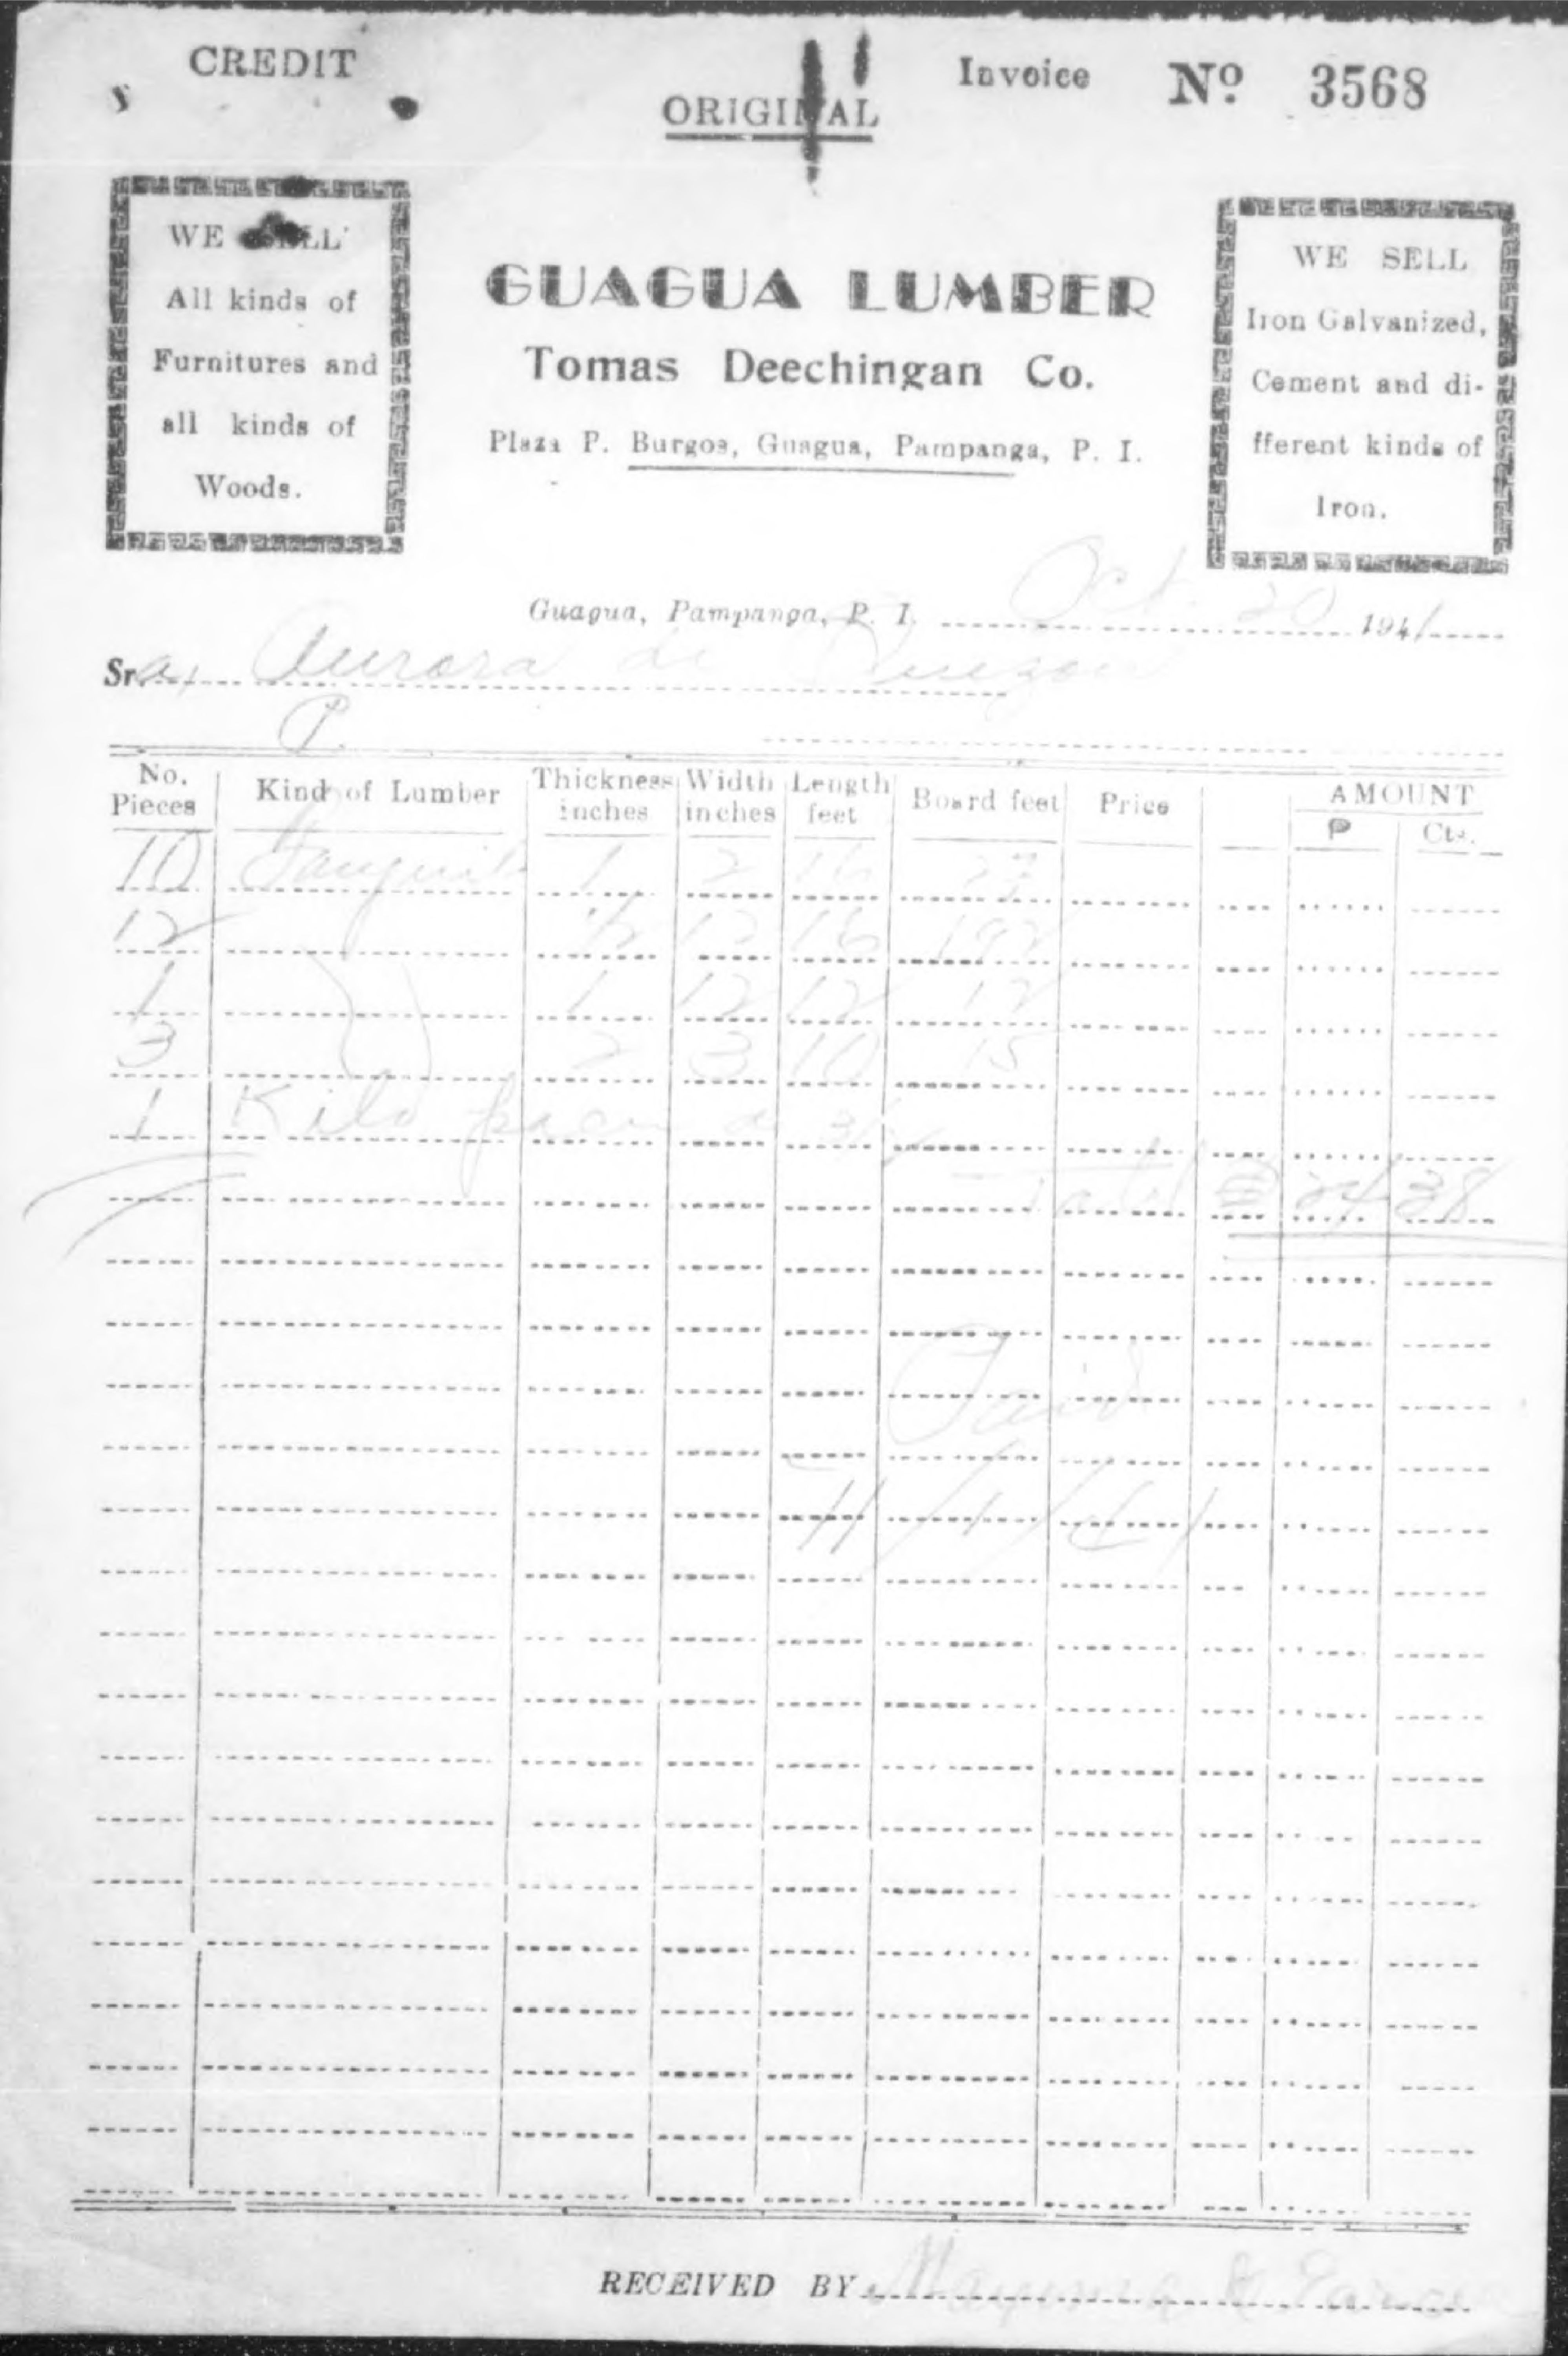 CREDIT
ORIGINAL
Invoice Nº 3568
WE SELL
All kinds of
Furnitures and
all kinds of
Woods.
GUAGUA LUMBER
Tomas Deechingan Co.
Plaza P. Burgos, Guagua, Pampanga, P. I.
WE SELL
Iron Galvanized,
Cement and di-
fferent kinds of
Iron.
Guagua, Pampanga, P. I. Oct. 20 1941
Sra. Aurora de Quezon
P.
No. Pieces Kind of Lumber Thickness inches Width inches Length feet Board feet Price AMOUNT
P Cts.
10 Tanguile 1 2 16 27
12 12 16 192
1 1 12 12 12
3 2 3 10 15
1 Kilo
Total 24 38
Paid
11/1/41
RECEIVED BY